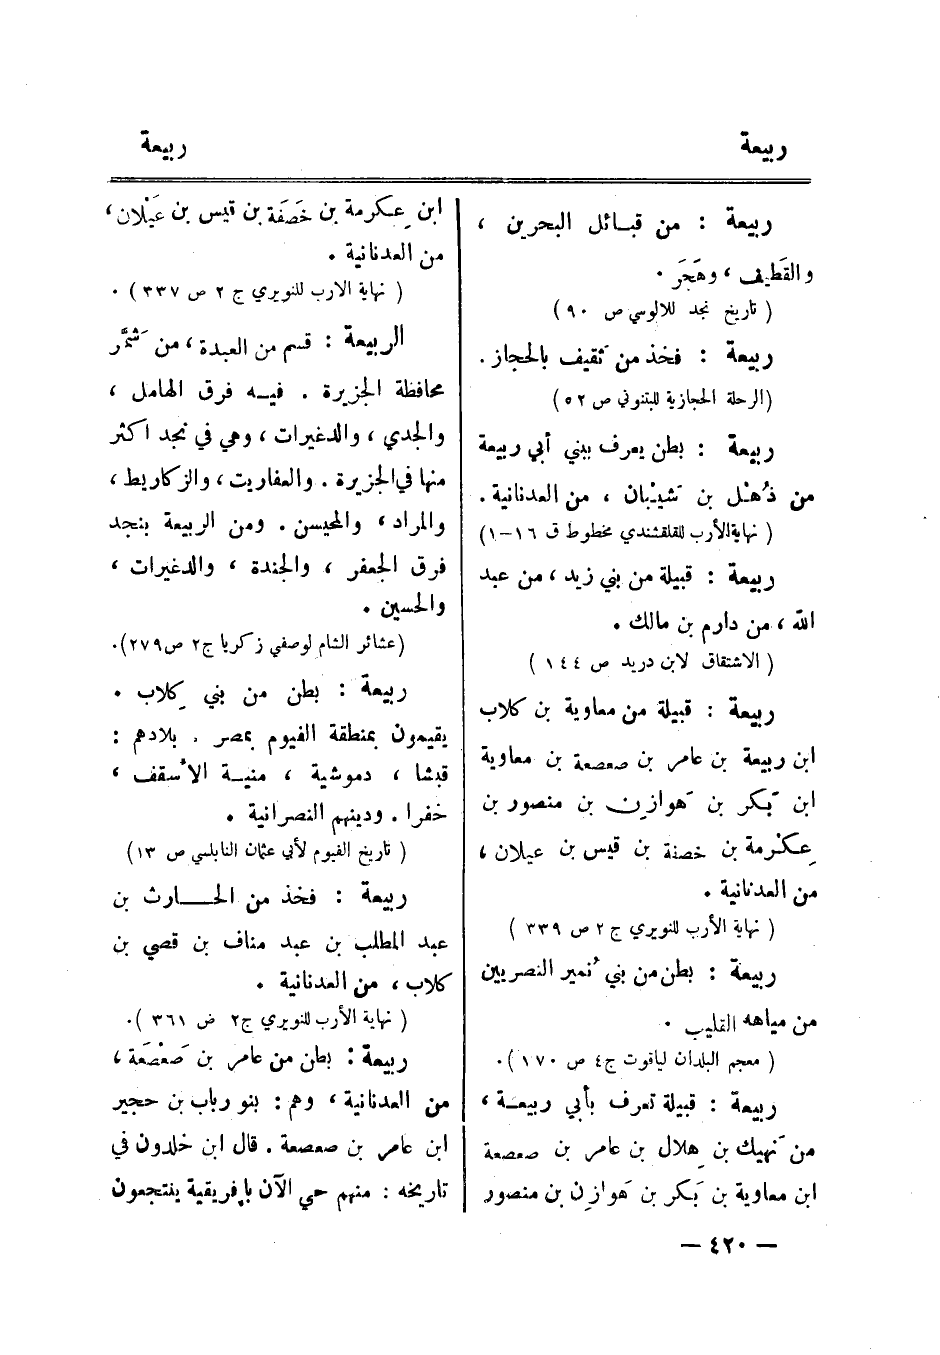 ربيعة
ربيعة
ربيعة : من قبائل البحرين ،
والقَطيف ، وهَجَر .
( تاريخ نجد للالوسي ص ٩٠ )
ربيعة : فخذ من ثقيف بالحجاز .
(الرحلة الحجازية للبتنوني ص ٥٢)
ربيعة : بطن يعرف ببني أبي ربيعة
من ذُهْل بن شَيْبان ، من العدنانية .
( نهاية الأرب للقلقشندي مخطوط ق ١٦-١)
ربيعة : قبيلة من بني زيد ، من عبد
الله ، من دارم بن مالك .
( الاشتقاق لابن دريد ص ١٤٤ )
ربيعة : قبيلة من معاوية بن كلاب
ابن ربيعة بن عامر بن صعصعة بن معاوية
ابن بَكر بن هَوازِن بن منصور بن
عِكْرمة بن خصنة بن قيس بن عيلان ،
من العدنانية .
( نهاية الأرب للنويري ج ٢ ص ٣٣٩ )
ربيعة : بطن من بني نُمير النصريين
من مياهه القليب .
( معجم البلدان لياقوت ج٤ ص ١٧٠ ) .
ربيعة : قبيلة تعرف بأبي ربيعة ،
من نَهيك بن هِلال بن عامر بن صعصعة
ابن معاوية بن بَكر بن هَوازِن بن منصور
ابن عِكرمة بن خَصَفَة بن قيس بن عَيْلان ،
من العدنانية .
( نهاية الارب للنويري ج ٢ ص ٣٣٧ ) .
الربيعة : قسم من العبدة ، من شَمَّر
محافظة الجزيرة . فيه فرق الهامل ،
والجدي ، والدغيرات ، وهي في نجد اكثر
منها في الجزيرة . والعفاريت ، والزكاريط ،
والمراد ، والمحيسن . ومن الربيعة بنجد
فرق الجعفر ، والجندة ، والدغيرات ،
والحسين .
(عشائر الشام لوصفي زكريا ج٢ ص٢٧٩).
ربيعة : بطن من بني كِلاب .
يقيمون بمنطقة الفيوم بمصر . بلادهم :
قبشا ، دموشية ، منية الأسقف ،
خفرا . ودينهم النصرانية .
( تاريخ الفيوم لأبي عثمان النابلسي ص ١٣)
ربيعة : فخذ من الحارث بن
عبد المطلب بن عبد مناف بن قصي بن
كلاب ، من العدنانية .
( نهاية الأرب للنويري ج٢ ض ٣٦١ ).
ربيعة : بطن من عامر بن صَعْصَعَة ،
من العدنانية ، وهم : بنو رباب بن حجير
ابن عامر بن صعصعة . قال ابن خلدون في
تاريخه : منهم حي الآن بإفريقية ينتجعون
— ٤٢٠ —